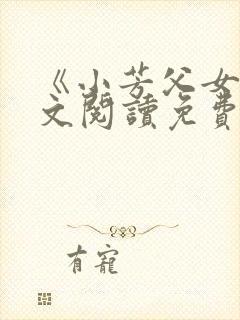 《小芳父女
文閱讀免費
有寵